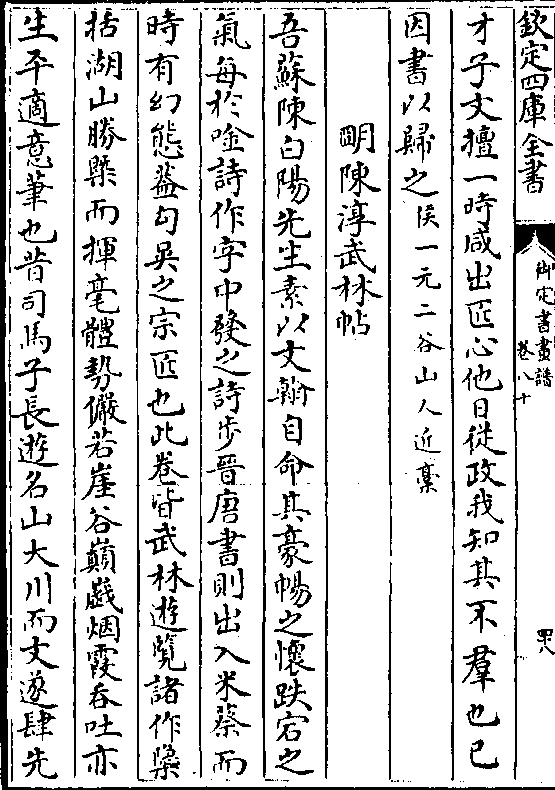 欽定四庫全書
御定書畫譜
卷八十
四八
才子文擅一時咸出匠心他日從政我知其不羣也已
因書以歸之侯一元二谷山人近藁
明陳淳武林帖
吾蘇陳白陽先生素以文翰自命其豪暢之懷跌宕之
氣每於唫詩作字中發之詩步晉唐書則出入米蔡而
時有幻態葢勾吳之宗匠也此卷皆武林遊覽諸作槩
括湖山勝槩而揮毫體勢儼若崖谷巔巇烟霞吞吐亦
生平適意筆也昔司馬子長遊名山大川而文遂肆先